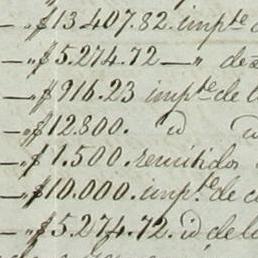 — „ $13407.82. imp.te d
— „ $5.274.72 — „ de
— „ $916.23 imp.te de l
— „ $12.800. id
— „ $1.500. remitidos
— „ $10.000. imp.te de c
— „ $5.274.72. id, de l